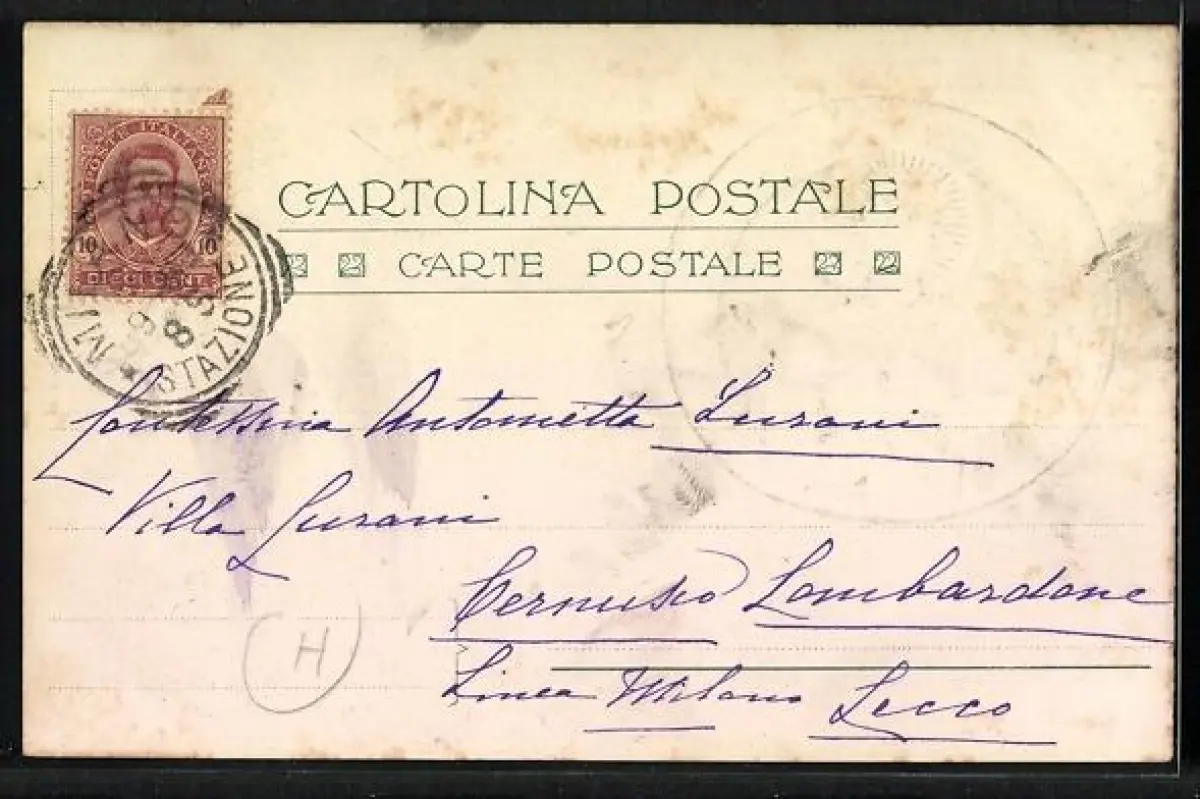 POSTE ITALIANE
10 10
DIECI CENT
STAZIONE
CARTOLINA POSTALE
CARTE POSTALE
Contessina Antonietta Lurani
Villa Lurani
Cernusco Lombardone
Linea Milano Lecco
H